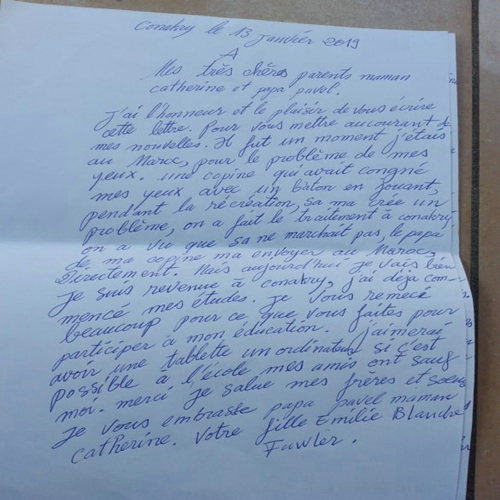 Conakry le 13 janvier 2019
A
Mes très chères parents maman
catherine et papa pavel.
J'ai l'honneur et le plaisir de vous écrire
cette lètre. Pour vous mettre aucourant de
mes nouvelles. Il fut un moment j'étais
au Maroc, pour le problème de mes
yeux. une copine qui avait congné
mes yeux avec un bâton en jouant,
pendant la récréation, sa ma crée un
problème, on a fait le traitement à conakry,
on a vu que sa ne marchait pas, le papa
de ma copine ma envoyer au Maroc,
Directement. Mais aujourd'hui je vais bien
je suis revenue à conakry, j'ai déja com-
mencé mes études. je vous remecè
beaucoup pour ce que vous faites pour
participer à mon éducation. j'aimerai
avoir une tablette un ordinateur si c'est
possible à l'école mes amis ont sauf
moi. merci je salue mes frères et soeurs
je vous embrasse papa pavel maman
catherine. votre fille Emilie Blanche
Fawler.